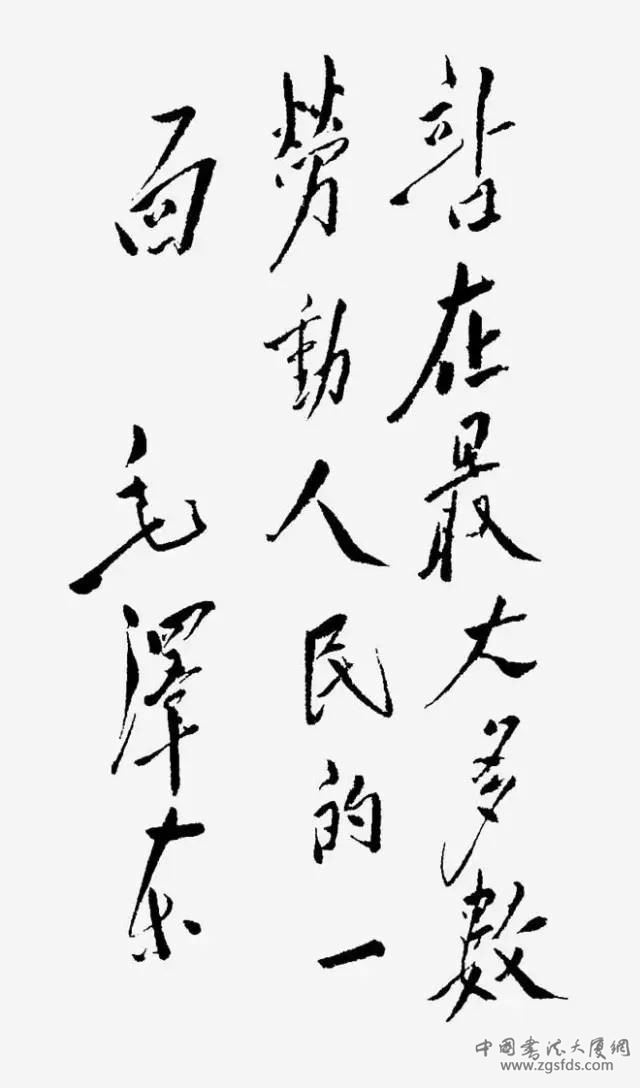 站在最大多數
勞動人民的一
面
毛澤东
中国书法大厦網
www.zgsfds.com